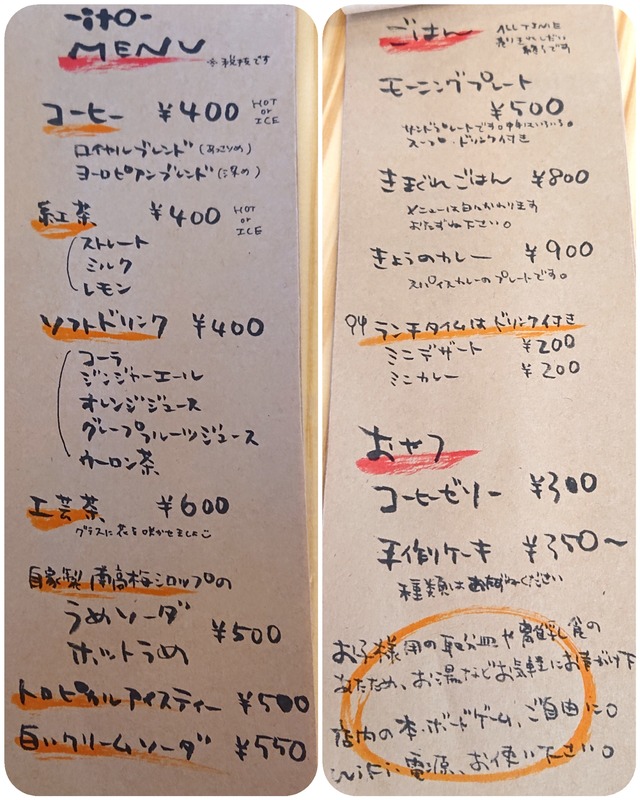 -ito-
MENU
※税抜です
コーヒー ¥400 HOT or ICE
ロイヤルブレンド(あっさりめ)
ヨーロピアンブレンド(深め)
紅茶 ¥400 HOT or ICE
ストレート
ミルク
レモン
ソフトドリンク ¥400
コーラ
ジンジャーエール
オレンジジュース
グレープフルーツジュース
ウーロン茶
工芸茶 ¥600
グラスに花を咲かせましょ
自家製 南高梅シロップの
うめソーダ
ホットうめ
¥500
トロピカルアイスティー ¥500
白いクリームソーダ ¥550
ごはん
ALL TIME
売り切れしだい
終了です
モーニングプレート
¥500
サンドプレートです。中はいろいろ。
スープ・ドリンク付き
きまぐれごはん ¥800
メニューは日がわります
おたずね下さい。
きょうのカレー ¥900
スパイスカレーのプレートです。
ランチタイムはドリンク付き
ミニデザート ¥200
ミニカレー ¥200
おやつ
コーヒーゼリー ¥300
手作りケーキ ¥350〜
種類はおたずねください
お子様用の取分皿や離乳食の
あたため、お湯などお気軽にお声がけ下
店内の本、ボードゲーム、ご自由に。
WiFi・電源、お使い下さい。